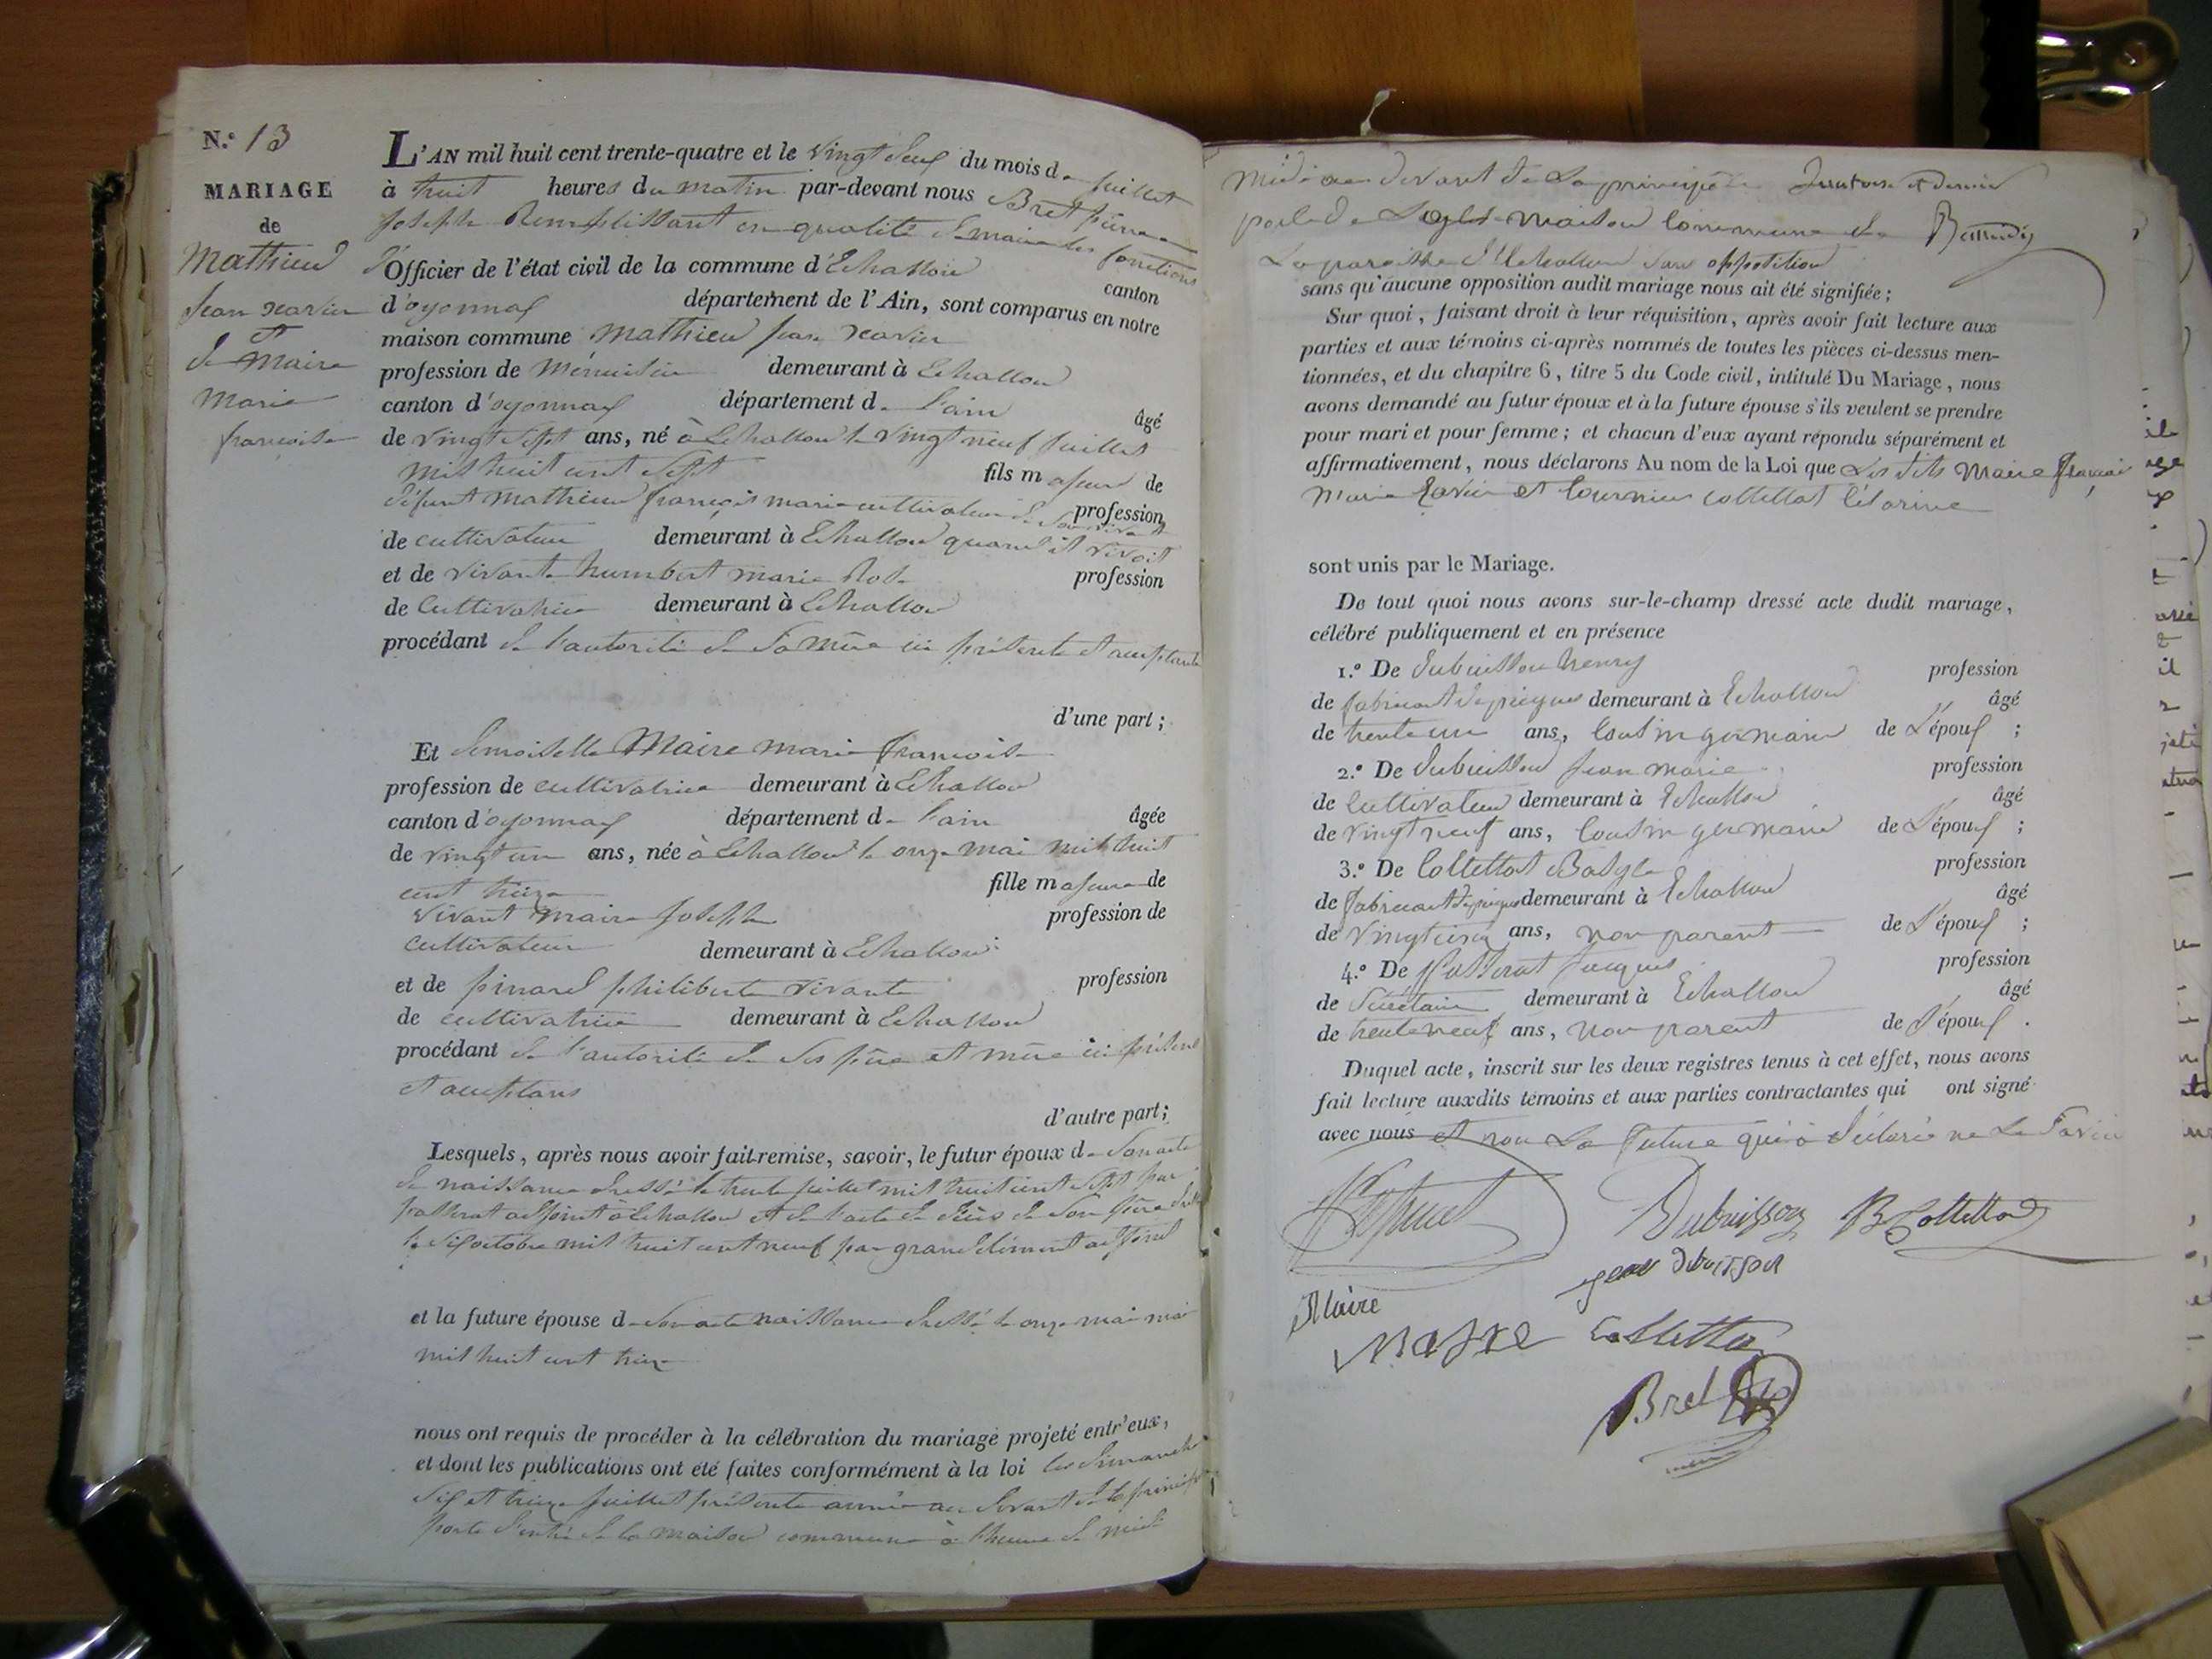 N.° 13
MARIAGE
de
Mathieu
Jean xavier
et
de Maire
Marie
francoise
L'AN mil huit cent trente-quatre et le vingt deux du mois de juillet
à huit heures du matin par-devant nous Bret pierre
joseph Remplissant en qualité de maire les fonctions
d'Officier de l'état civil de la commune d'Echallon canton
d'oyonnax département de l'Ain, sont comparus en notre
maison commune Mathieu jean xavier
profession de Menuisier demeurant à Echallon
canton d'oyonnax département de l'ain âgé
de vingt sept ans, né à Echallon le vingt neuf juillet
mil huit cent sept fils majeur de
défunt Mathieu françois marie cultivateur de son vivant profession
de cultivateur demeurant à Echallon quand il vivoit
et de vivante humbert marie Rose profession
de Cultivatrice demeurant à Echallon
procédant de l'autorité de sa mère ici présente et acceptante
d'une part ;
Et demoiselle Maire marie francoise
profession de cultivatrice demeurant à Echallon
canton d'oyonnax département de l'ain âgée
de vingt un ans, née à Echallon le onze mai mil huit
cent treize fille majeure de
vivant maire joseph profession de
cultivateur demeurant à Echallon
et de pinard philiberte vivante profession
de cultivatrice demeurant à Echallon
procédant de l'autorité de ses père et mère ici présent
et acceptans
d'autre part ;
Lesquels, après nous avoir fait remise, savoir, le futur époux de son acte
de naissance dressé le trente juillet mil huit cent sept par
passerat adjoint à Echallon et de l'acte de décès de son père
le six octobre mil huit cent neuf par grand clément adjoint
et la future épouse de son acte naissance dressé le onze mai mai
mil huit cent treize
nous ont requis de procéder à la célébration du mariage projeté entr'eux,
et dont les publications ont été faites conformément à la loi les dimanche
six et treize juillet présente année au devant de la principale
porte d'entrée de la maison commune à l'heure de midi
Midi au devant de la principale
porte de maison commune de
La paroisse d'Echallon sans opposition
sans qu'aucune opposition audit mariage nous ait été signifiée ;
Sur quoi, faisant droit à leur réquisition, après avoir fait lecture aux
parties et aux témoins ci-après nommés de toutes les pièces ci-dessus men-
tionnées, et du chapitre 6, titre 5 du Code civil, intitulé Du Mariage, nous
avons demandé au futur époux et à la future épouse s'ils veulent se prendre
pour mari et pour femme ; et chacun d'eux ayant répondu séparément et
affirmativement, nous déclarons Au nom de la Loi que Les dits Maire françois
Marie Xavier et Tournier collettat Césarine
sont unis par le Mariage.
De tout quoi nous avons sur-le-champ dressé acte dudit mariage,
célébré publiquement et en présence
1.° De dubuisson henry profession
de fabricant de peignes demeurant à Echallon âgé
de trente un ans, Cousin germain de L'époux ;
2.° De dubuisson jean marie profession
de Cultivateur demeurant à Echallon âgé
de vingt neuf ans, Cousin germain de L'époux ;
3.° De Collettat Basyle profession
de fabricant de peignes demeurant à Echallon âgé
de vingt cinq ans, non parent de L'époux ;
4.° De Passerat Jacques profession
de Secrétaire demeurant à Echallon âgé
de trente neuf ans, non parent de L'époux .
Duquel acte, inscrit sur les deux registres tenus à cet effet, nous avons
fait lecture auxdits témoins et aux parties contractantes qui ont signé
avec nous et non La future qui a déclaré ne Le Savoir
Dubuisson B Collettat
jean dubuisson
Maire
Maire Collettat
Bret